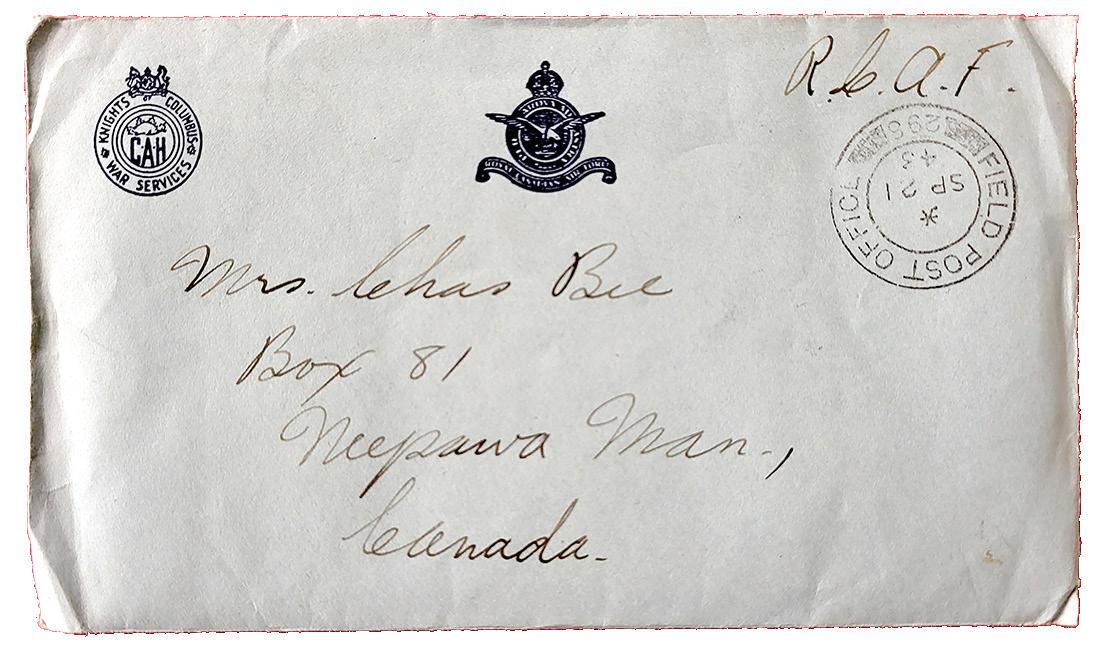 R.C.A.F.
KNIGHTS OF COLUMBUS
CAH
WAR SERVICES
ROYAL CANADIAN AIR FORCE
FIELD POST OFFICE
SP 21
43
Mrs. Chas Bee
Box 81
Neepawa Man.,
Canada.